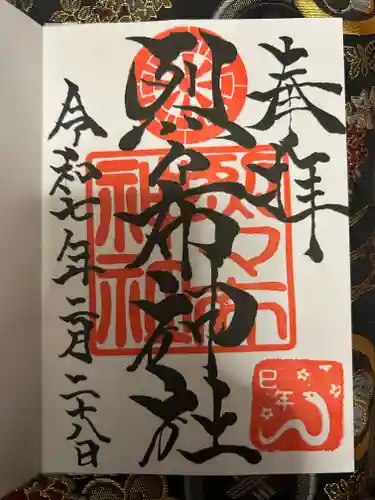 奉拝
烈々布神社
令和七年二月二十八日
烈々布
神社
巳年